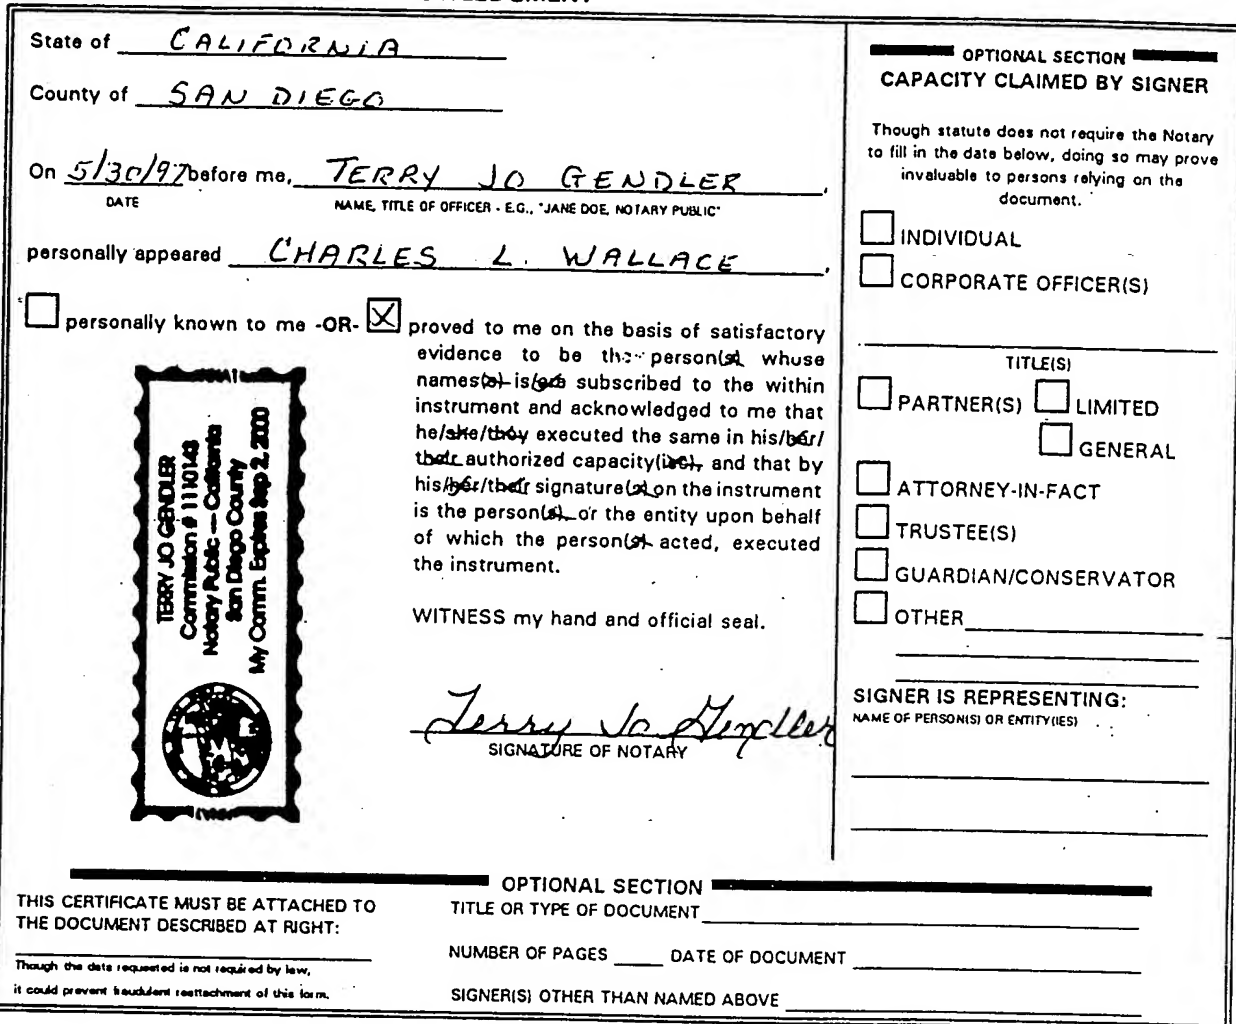 State of CALIFORNIA
County of SAN DIEGO
On 5/30/97 before me, TERRY JO GENDLER,
DATE
NAME, TITLE OF OFFICER - E.G., "JANE DOE, NOTARY PUBLIC"
personally appeared CHARLES L. WALLACE,
personally known to me -OR- X proved to me on the basis of satisfactory
evidence to be the person(s) whose
names(s) is/are subscribed to the within
instrument and acknowledged to me that
he/she/they executed the same in his/her/
their authorized capacity(ies), and that by
his/her/their signature(s) on the instrument
is the person(s) or the entity upon behalf
of which the person(s) acted, executed
the instrument.
WITNESS my hand and official seal.
Terry Jo Gendler
SIGNATURE OF NOTARY
TERRY JO GENDLER
Commission # 1110143
Notary Public — California
San Diego County
My Comm. Expires Sep 2, 2000
OPTIONAL SECTION
CAPACITY CLAIMED BY SIGNER
Though statute does not require the Notary
to fill in the date below, doing so may prove
invaluable to persons relying on the
document.
INDIVIDUAL
CORPORATE OFFICER(S)
TITLE(S)
PARTNER(S) LIMITED
GENERAL
ATTORNEY-IN-FACT
TRUSTEE(S)
GUARDIAN/CONSERVATOR
OTHER
SIGNER IS REPRESENTING:
NAME OF PERSON(S) OR ENTITY(IES)
OPTIONAL SECTION
THIS CERTIFICATE MUST BE ATTACHED TO
THE DOCUMENT DESCRIBED AT RIGHT:
Though the data requested is not required by law,
it could prevent fraudulent reattachment of this form.
TITLE OR TYPE OF DOCUMENT
NUMBER OF PAGES DATE OF DOCUMENT
SIGNER(S) OTHER THAN NAMED ABOVE